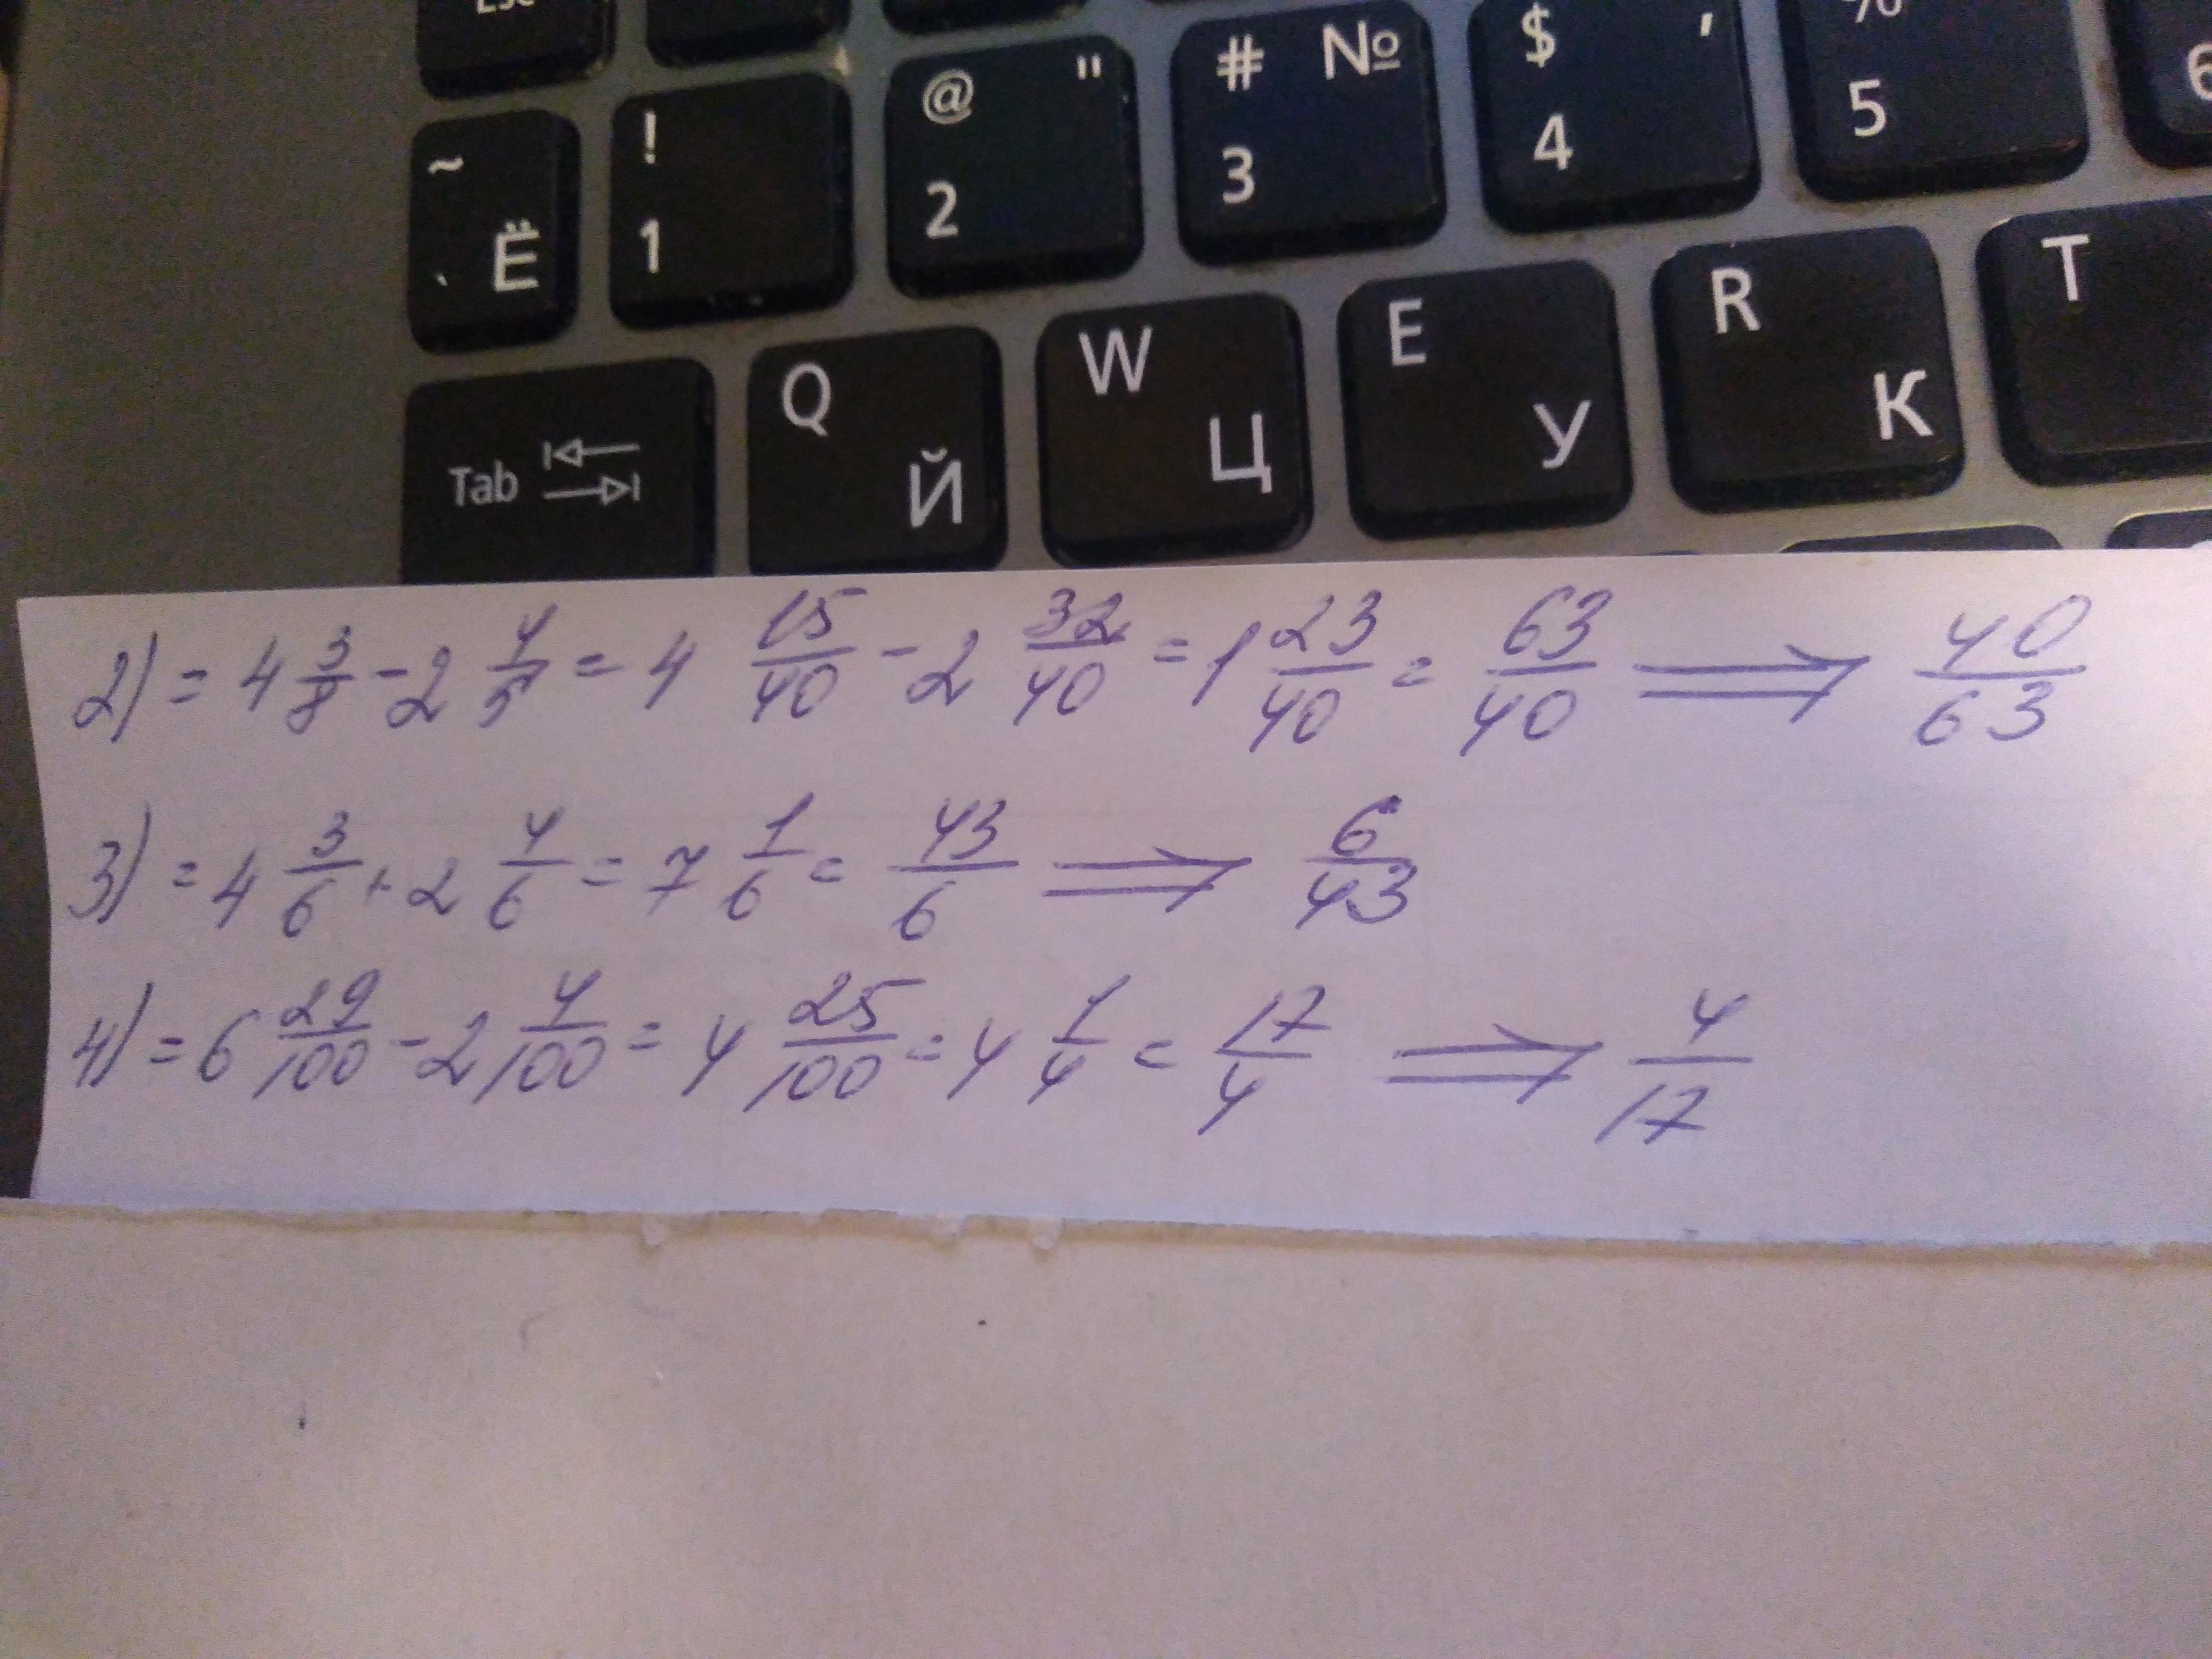 Esc
~ ` Ё ! 1 @ " 2 # № 3 $ ' 4 % 5 6
Tab Q Й W Ц E У R К T
2) = 4 3/8 - 2 4/5 = 4 15/40 - 2 32/40 = 1 23/40 = 63/40 ⟹ 40/63
3) = 4 3/6 + 2 4/6 = 7 1/6 = 43/6 ⟹ 6/43
4) = 6 29/100 - 2 4/100 = 4 25/100 = 4 1/4 = 17/4 ⟹ 4/17